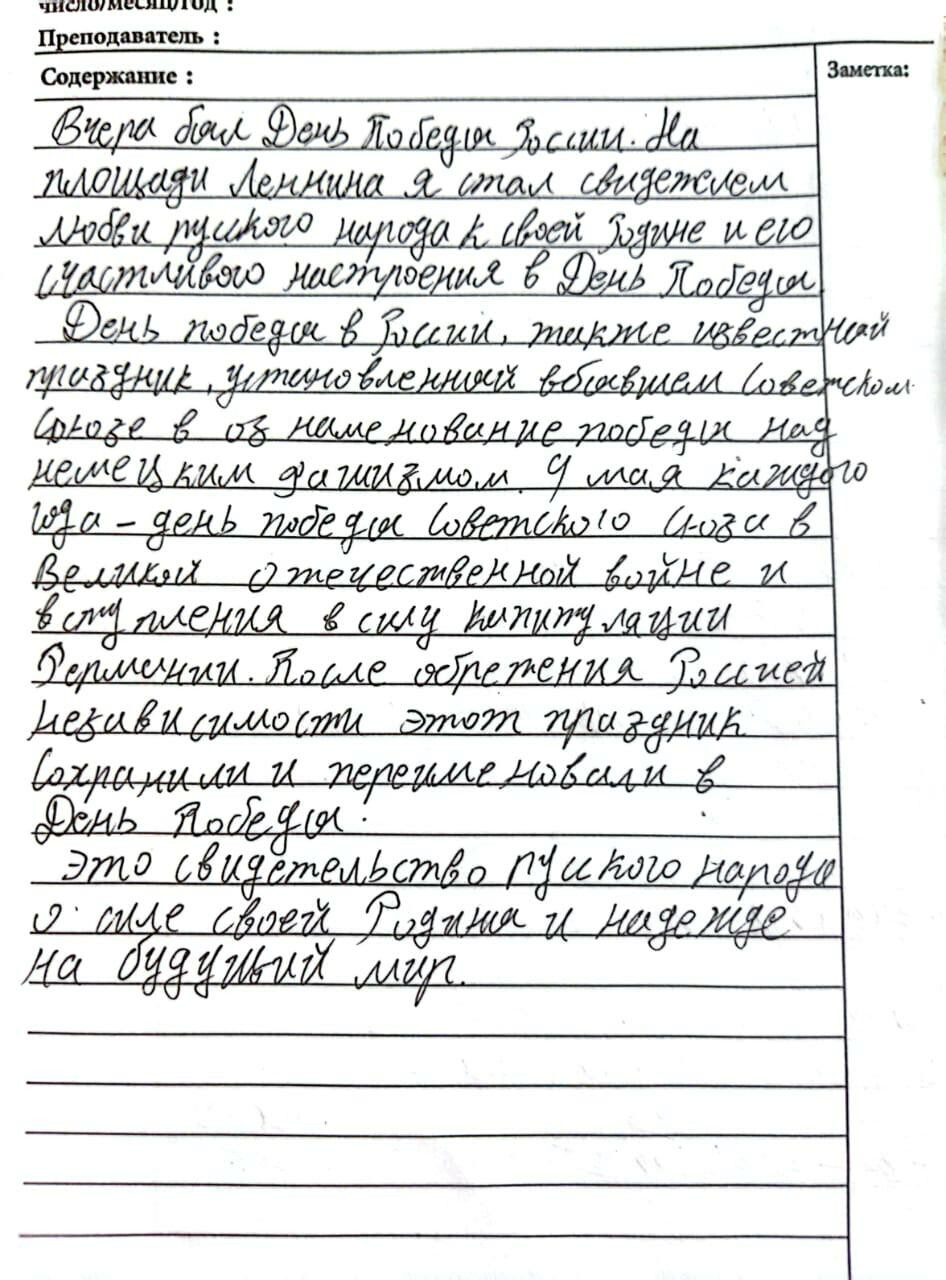 число/месяц/год :
Преподаватель :
Содержание :
Заметка:
Вчера был День Победы России. На
площади Леннина я стал свидетелем
любви русского народа к своей Родине и его
счастливого настроения в День Победы
День победы в России, также известный
праздник, установленный в бывшем Советском
Союзе в ознаменование победы над
немецким фашизмом. 9 мая каждого
года – день победы Советского Союза в
Великой Отечественной войне и
вступления в силу капитуляции
Германии. После обретения Россией
независимости этот праздник
сохранили и переименовали в
День Победы.
Это свидетельство русского народа
о силе своей Родины и надежде
на будущий мир.